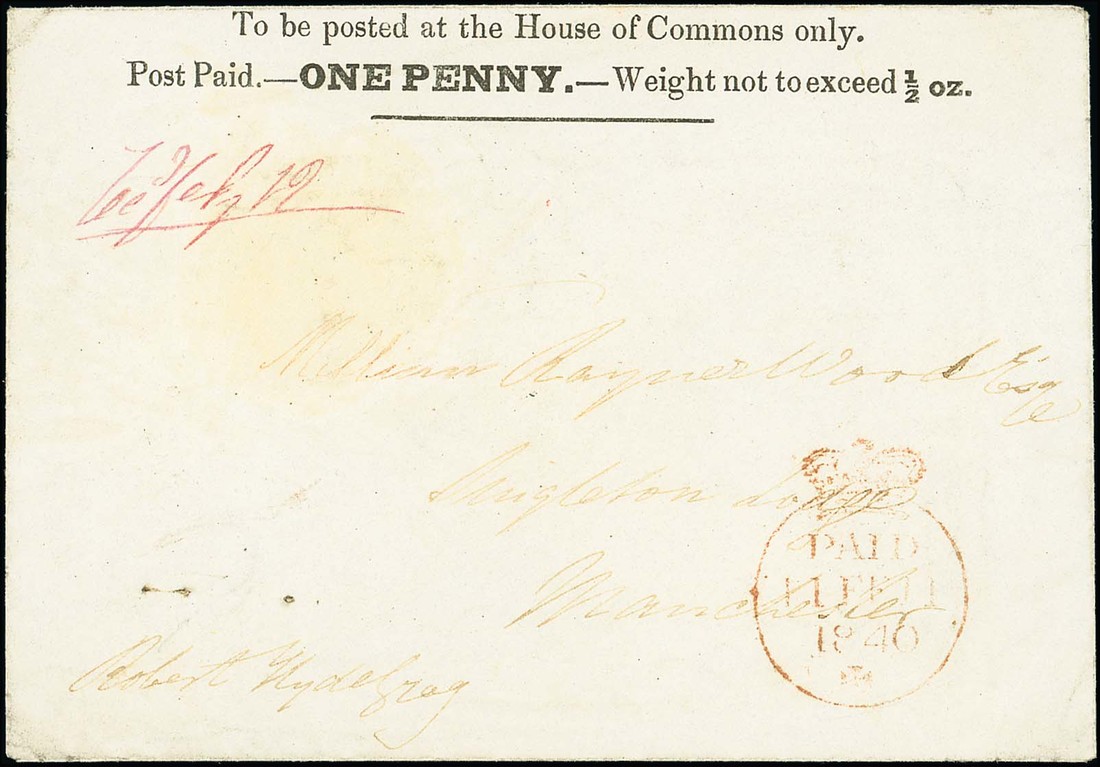 To be posted at the House of Commons only.
Post Paid.—ONE PENNY.—Weight not to exceed ½ oz.
19
William Rayner Wood Esqe
Singleton Lodge
Manchester
PAID
1840
Robert Hyde Greg